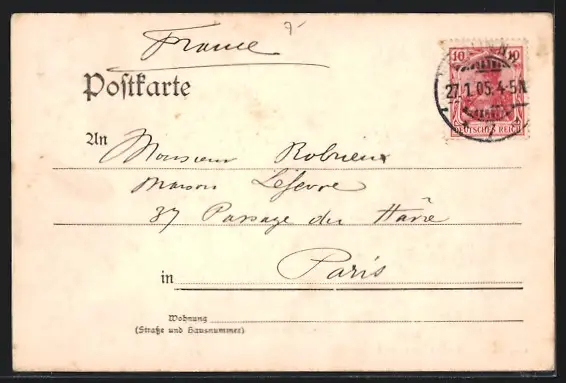 France 7-
Postkarte
10 10
27.1.05. 4-5N
DEUTSCHES REICH
An Monsieur Robrieux
Maison Lefevre
37 Passage du Havre
in Paris
Wohnung
(Straße und Hausnummer)